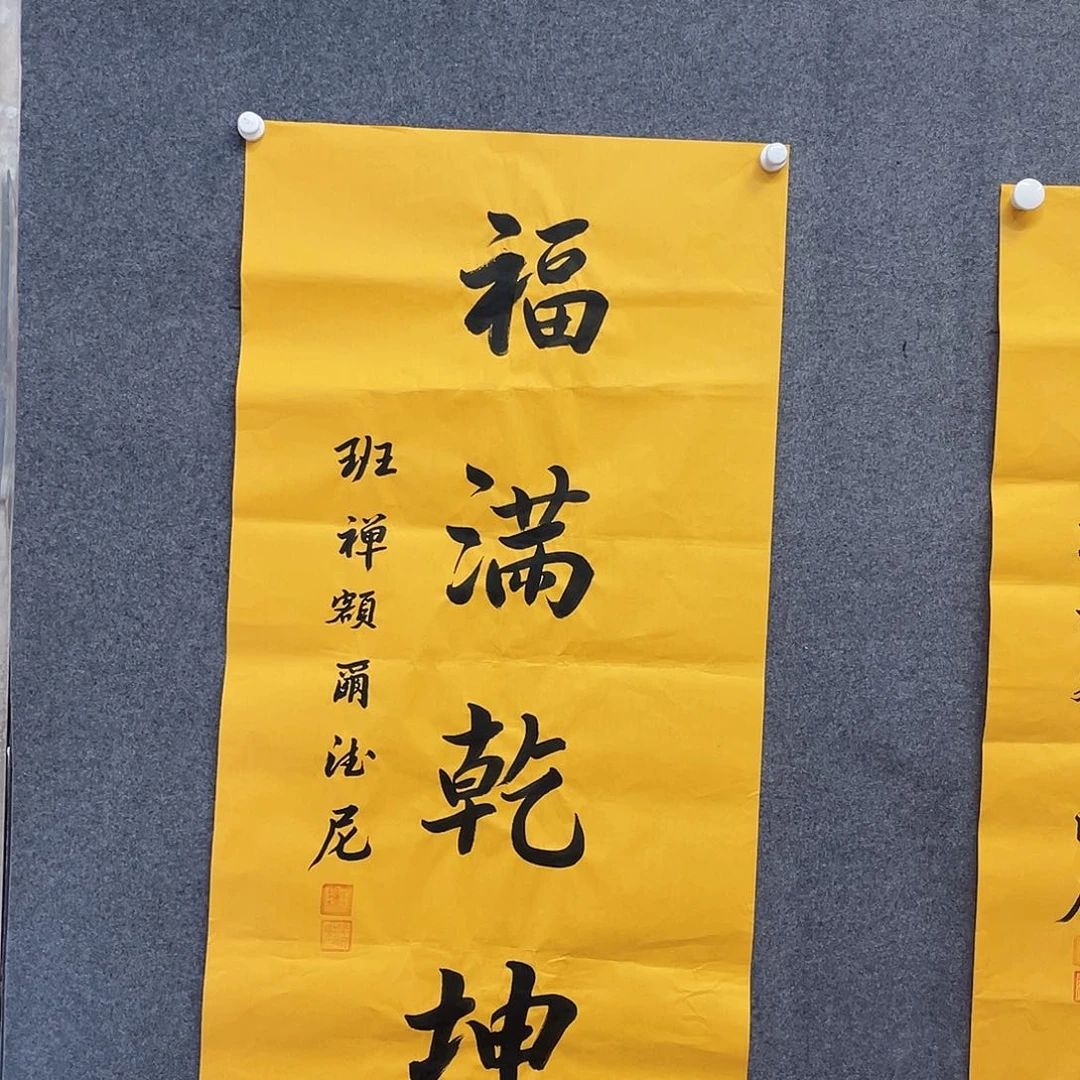 福满乾坤
班禅额爾德尼